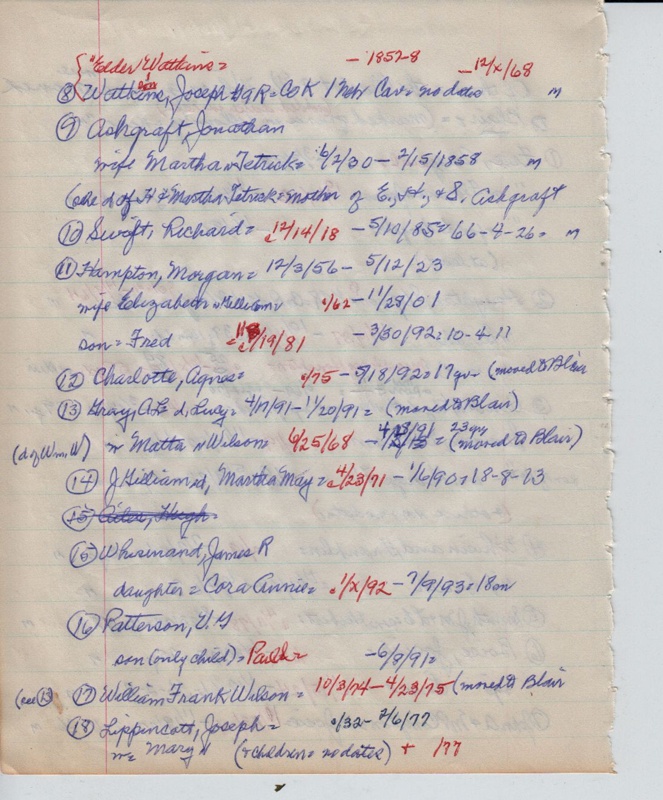 "Elder" Watkins = - 1857-8 - 12/x/68
⑧ Watkins, Joseph GAR = Co K 1 Nebr Cav = no dates m
⑨ Ashcraft, Jonathan
wife Martha n Tetrick = 6/2/30 - 2/15/1858 m
(she d of H & Martha Tetrick = mother of E., H., & S. Ashcraft
⑩ Swift, Richard = c 12/14/18 - 5/10/85 = 66-4-26 = m
⑪ Hampton, Morgan = 12/3/56 - 5/12/23
wife Elizabeth n Williams = c/62 - 11/28/01
son = Fred = c 11/19/81 - 3/30/92 = 10-4-11
⑫ Charlotte, Agnes = c/75 - 5/18/92 = 17 yr (moved to Blair
⑬ Gray, A.L. d, Lucy = 4/17/91 - 11/20/91 = (moved to Blair)
(d of Wm W) w Matta n Wilson = 6/25/68 - 4/23/91 = 23 yr (moved to Blair)
⑭ J Gilliam d, Martha May = c 4/23/71 - 1/6/90 = 18-8-13
15 Hugh
⑮ Whisinand, James R
daughter = Cora Annie = c 1/x/92 - 7/9/93 = 18 m
⑯ Patterson, U.G
son (only child) = Paul = - 6/8/91 =
(see ⑬) ⑰ William Frank Wilson = 10/3/74 - 4/23/75 (moved to Blair
⑱ Lippincott, Joseph = c/32 - 2/6/77
w = Mary n (& children = no dates) + /77